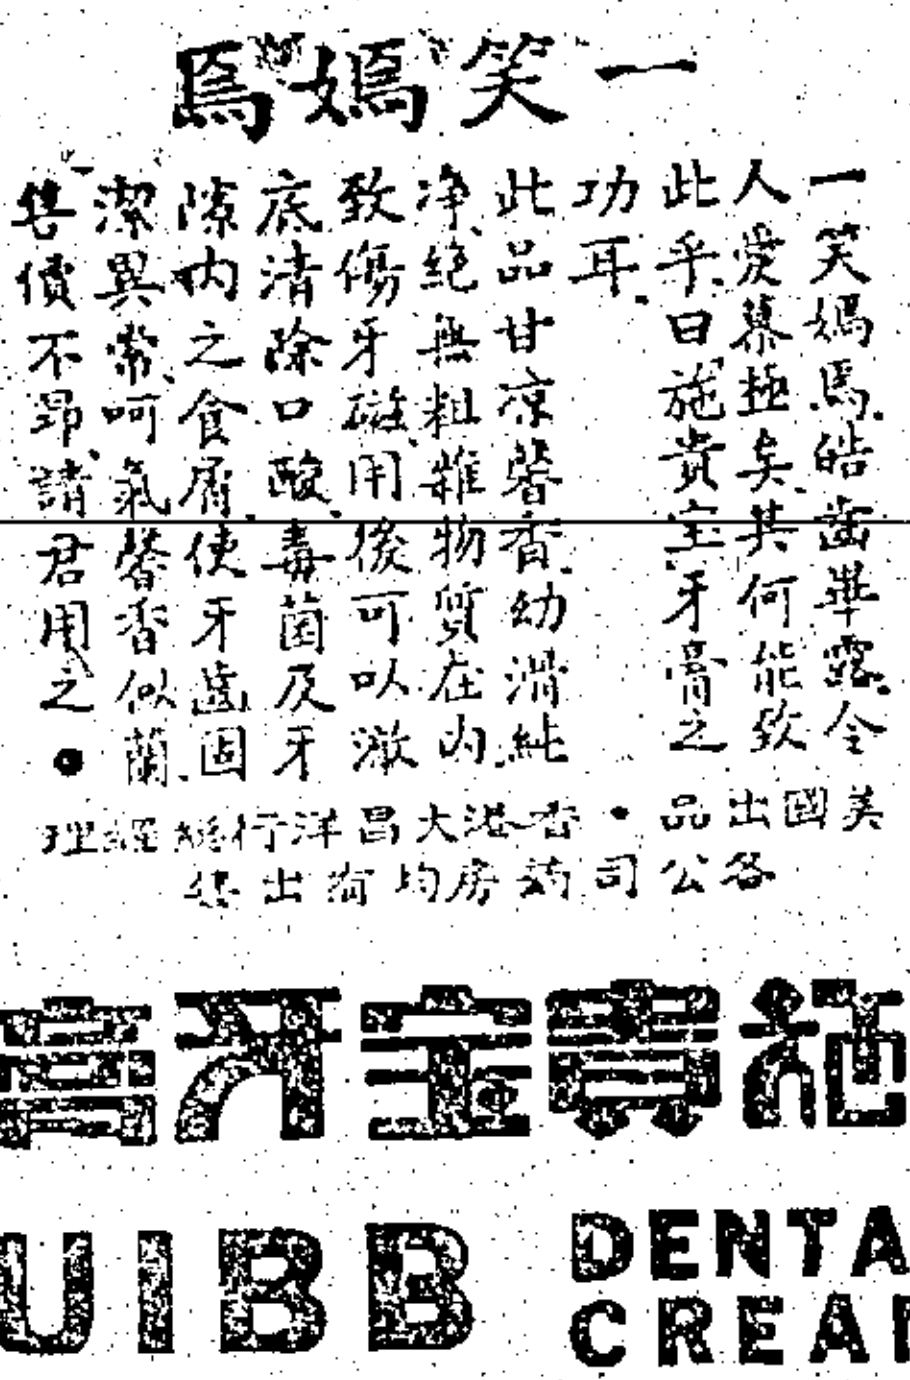 一笑嫣焉
一笑嫣焉、皓齒畢露、令
人愛慕極矣、其何能致
此乎、曰施貴宝牙膏之
功耳、
此品甘凉馨香、幼滑純
净、絶無粗雜物質在内、
致傷牙磁、用後可以澈
底清除口酸、毒菌及牙
隙内之食屑、使牙齒固
潔異常、呵氣馨香似蘭、
售價不昂、請君用之●
美國出品•香港大昌洋行總經理
各公司葯房均有出售
施貴宝牙膏
UIBB
DENTA
CREA